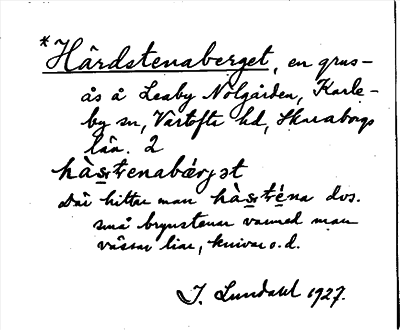 *Hårdstenaberget, en grus-
ås å Leaby Nolgården, Karle-
by sn, Vartofta hd, Skaraborgs
län. 2
hàs̱tṛenabærjət
Där hittar man hàs̱tṛéna dvs.
små brynstenar varmed man
vässar liar, knivar o.d.
I. Lundahl 1927.